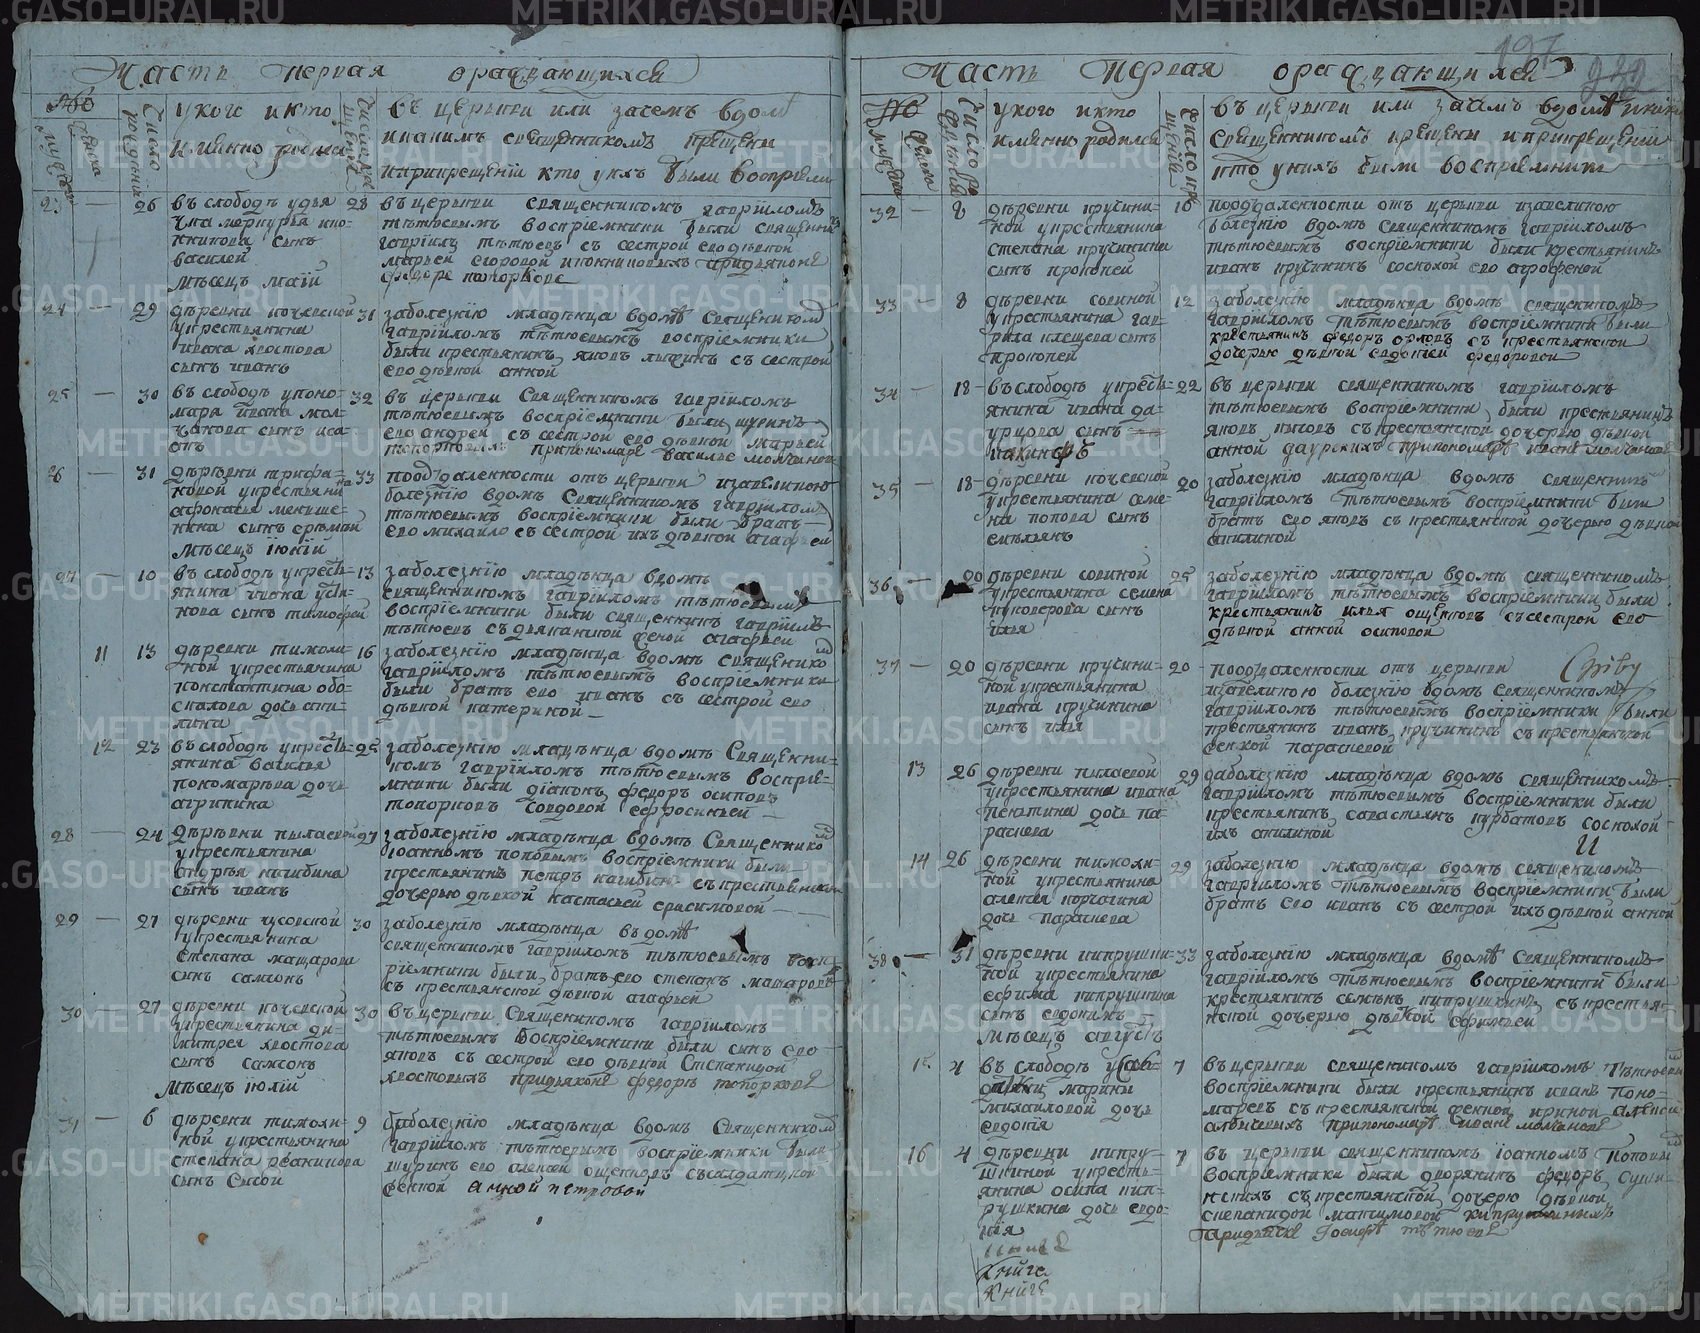 Часть первая ораждающихся
число рождения
у кого и кто
именно родился
въ церькви или засемъ вдомѣ
икакимъ священникомъ крещены
ипрекрещенїи кто унхъ были восприемн
23 — 26 въ слободѣ удья 28
чка меркурья ико-
нникова сынъ
василей
въ церькви священникомъ гаврїиломъ
тѣтюевымъ восприемники были священни
гаврїилъ тѣтюевъ съ сестрой ево дѣвкой
марьей егоровой иконниковыхъ придьяконѣ
федоре топоркове
мѣсецъ маїй
24 — 29 дѣревни кочневской 31
укрестьянина
ивана хвостова
сынъ иванъ
заболезнїю младѣнца вдомѣ священиком
гаврїиломъ тѣтюевымъ воспрїемники
были крестьянинъ яковъ лыжинъ съ сестрой
ево дѣвкой анной
25 — 30 въ слободѣ упоно- 32
маря ивана мол-
чанова сынъ иса-
акъ
въ церькви священикомъ гаврїиломъ
тѣтюевымъ воспрїемники были шуринъ
ево андрей съ сестрой ево дѣвкой марьей
топорковыхъ припономаре василье молчанов
26 — 31 дѣревни трифа- 33
новой укрестьяни на
афонасья меньше-
нина сынъ еремѣй
поотдаленности отъ церькви изавеликою
болезнїю вдомѣ священикомъ гаврїиломъ
тѣтюевымъ воспрїемники были братъ
ево михайло съ сестрой ихъ дѣвкой агафьей
мѣсецъ їюнїй
27 — 10 въ слободѣ укресть- 13
янина ивана усти-
нова сынъ тимофей
заболезнїю младѣнца вдомѣ
священникомъ гаврїиломъ тѣтюевымъ
воспрїемники были священникъ гаврїилъ
тѣтюевъ съ дьяконской женой агафьей
11 13 дѣревни тимохи- 16
ной укрестьянина
константина обо-
скалова дочь аки-
лина
заболезнїю младѣнца вдомѣ священико
гаврїиломъ тѣтюевымъ воспрїемники
были братъ ево иванъ съ сестрой ево
дѣвкой катериной —
12 23 въ слободѣ укресть- 25
янина василья
пономарева дочь
агрипина
заболезнїю младѣнца вдомѣ священни-
комъ гаврїиломъ тѣтюевымъ воспрїе-
мники были дїаконъ федоръ осиповъ
топорковъ совдовой ефросиньей —
28 — 24 дѣревни пылаевой 27
укрестьянина
андрея нагибина
сынъ иванъ
заболезнїю младѣнца вдомѣ священнико
їоанномъ поповымъ воспрїемники были
крестьянинъ петръ нагибинъ съ крестьянской
дочерью дѣвкой настасьей герасимовой —
29 — 27 дѣревни чусовской 30
укрестьянина
степана мащарова
сынъ самсонъ
заболезнїю младѣнца въ домѣ
священникомъ гаврїиломъ тѣтюевымъ восп
рїемники были братъ ево степанъ мащаровъ
съ крестьянской дѣвкой агафьей
30 — 27 дѣревни кочневской 30
укрестьянина ди-
митрея хвостова
сынъ самсонъ
въ церькви священикомъ гаврїиломъ
тѣтюевымъ воспрїемники были сынъ ево
яковъ съ сестрой ево дѣвкой степанидой
хвостовыхъ придьяконѣ федорѣ топорковѣ
мѣсецъ їюлїй
31 — 6 дѣревни тимохи- 9
ной укрестьянина
степана рѣакинова
сынъ сысой
заболезнїю младѣнца вдомѣ священником
гаврїиломъ тѣтюевымъ воспрїемники были
шуринъ ево алексей ощепковъ съ салдатской
женкой анной петровой
197
Часть первая ораждающихся
число рожденїя
у кого и кто
именно родился
число крещенїя
въ церькви или засемъ вдомѣ икакимъ
священникомъ крещены иприкрещенїи
кто унихъ были воспрїемники
32 — 8 дѣревни кручини- 10
ной укрестьянина
степана кручинина
сынъ прокопей
поотдаленности отъ церькви изавеликою
болезнїю вдомѣ священникомъ гаврїиломъ
тѣтюевымъ воспрїемники были крестьянинъ
иванъ кручининъ соснохой ево агрофеной
33 — 8 дѣревни совиной 12
укрестьянина гав-
рила клещева сынъ
прокопей
заболезнїю младѣнца вдомѣ священникомъ
гаврїиломъ тѣтюевымъ воспрїемники были
крестьянинъ федоръ орловъ съ крестьянской
дочерью дѣвкой евдокїей федоровой
34 — 18 въ слободѣ укресть- 22
янина ивана да-
урцова сынъ
иакинфъ
въ церькви священникомъ гаврїиломъ
тѣтюевымъ воспрїемники были крестьянинъ
яковъ пысовъ съ крестьянской дочерью дѣвкой
анной даурскихъ припономарѣ иванѣ молчановѣ
35 — 18 дѣревни кочневской 20
укрестьянина семе-
на попова сынъ
емельянъ
заболезнїю младѣнца вдомѣ священникъ
гаврїиломъ тѣтюевымъ воспрїемники были
братъ ево яковъ съ крестьянской дочерью дѣвкой
акилиной
36 — 20 дѣревни совиной 25
укрестьянина семена
пуховерова сынъ
илья
заболезнїю младѣнца вдомѣ священникомъ
гаврїиломъ тѣтюевымъ воспрїемники были
крестьянинъ илья ощепковъ съ сестрой ево
дѣвкой анной осиповой
37 — 20 дѣревни кручини- 20
ной укрестьянина
ивана кручинина
сынъ илья
поотдаленности отъ церькви
изавеликою болезнїю вдомѣ священникомъ
гаврїиломъ тѣтюевымъ воспрїемники были
крестьянинъ иванъ кручининъ съ крестьянской
женкой парасковей
13 26 дѣревни пылаевой 29
укрестьянина ивана
пехтина дочь па-
раскева
заболезнїю младѣнца вдомѣ священникомъ
гаврїиломъ тѣтюевымъ воспрїемники были
крестьянинъ савастьянъ курбатовъ соснохой
ихъ акилиной
14 26 дѣревни тимохи- 29
ной укрестьянина
алексея корчагина
дочь параскева
заболезнїю младѣнца вдомѣ священникомъ
гаврїиломъ тѣтюевымъ воспрїемники были
братъ ево иванъ съ сестрой ихъ дѣвкой анной
38 — 31 дѣревни кипруши- 33
ной укрестьянина
ефима кипрушкина
сынъ евдокимъ
заболезнїю младѣнца вдомѣ священникомъ
гаврїиломъ тѣтюевымъ воспрїемники были
крестьянинъ семенъ кипрушкинъ съ крестья-
нской дочерью дѣвкой ефимьей
мѣсецъ августъ
15 4 въ слободѣ усал- 7
датки марины
михайловой дочь
евдокїя
въ церькви священникомъ гаврїиломъ тѣтюевы
воспрїемники были крестьянинъ иванъ поно-
маревъ съ крестьянской женкой ириной алексѣ
припономарѣ иванѣ молчановѣ
16 4 дѣревни кипру- 7
шкиной укресть-
янина осипа кип-
рушкина дочь евдо-
кїя
въ церькви священникомъ їоанномъ поповы
воспрїемники были дворянинъ федоръ суши-
нскихъ съ крестьянской дочерю дѣвкой
степанидой максимовой кипрушкиныхъ
придьячке їосифѣ тѣтюевѣ
книге
книге
METRIKI.GASO-URAL.RU